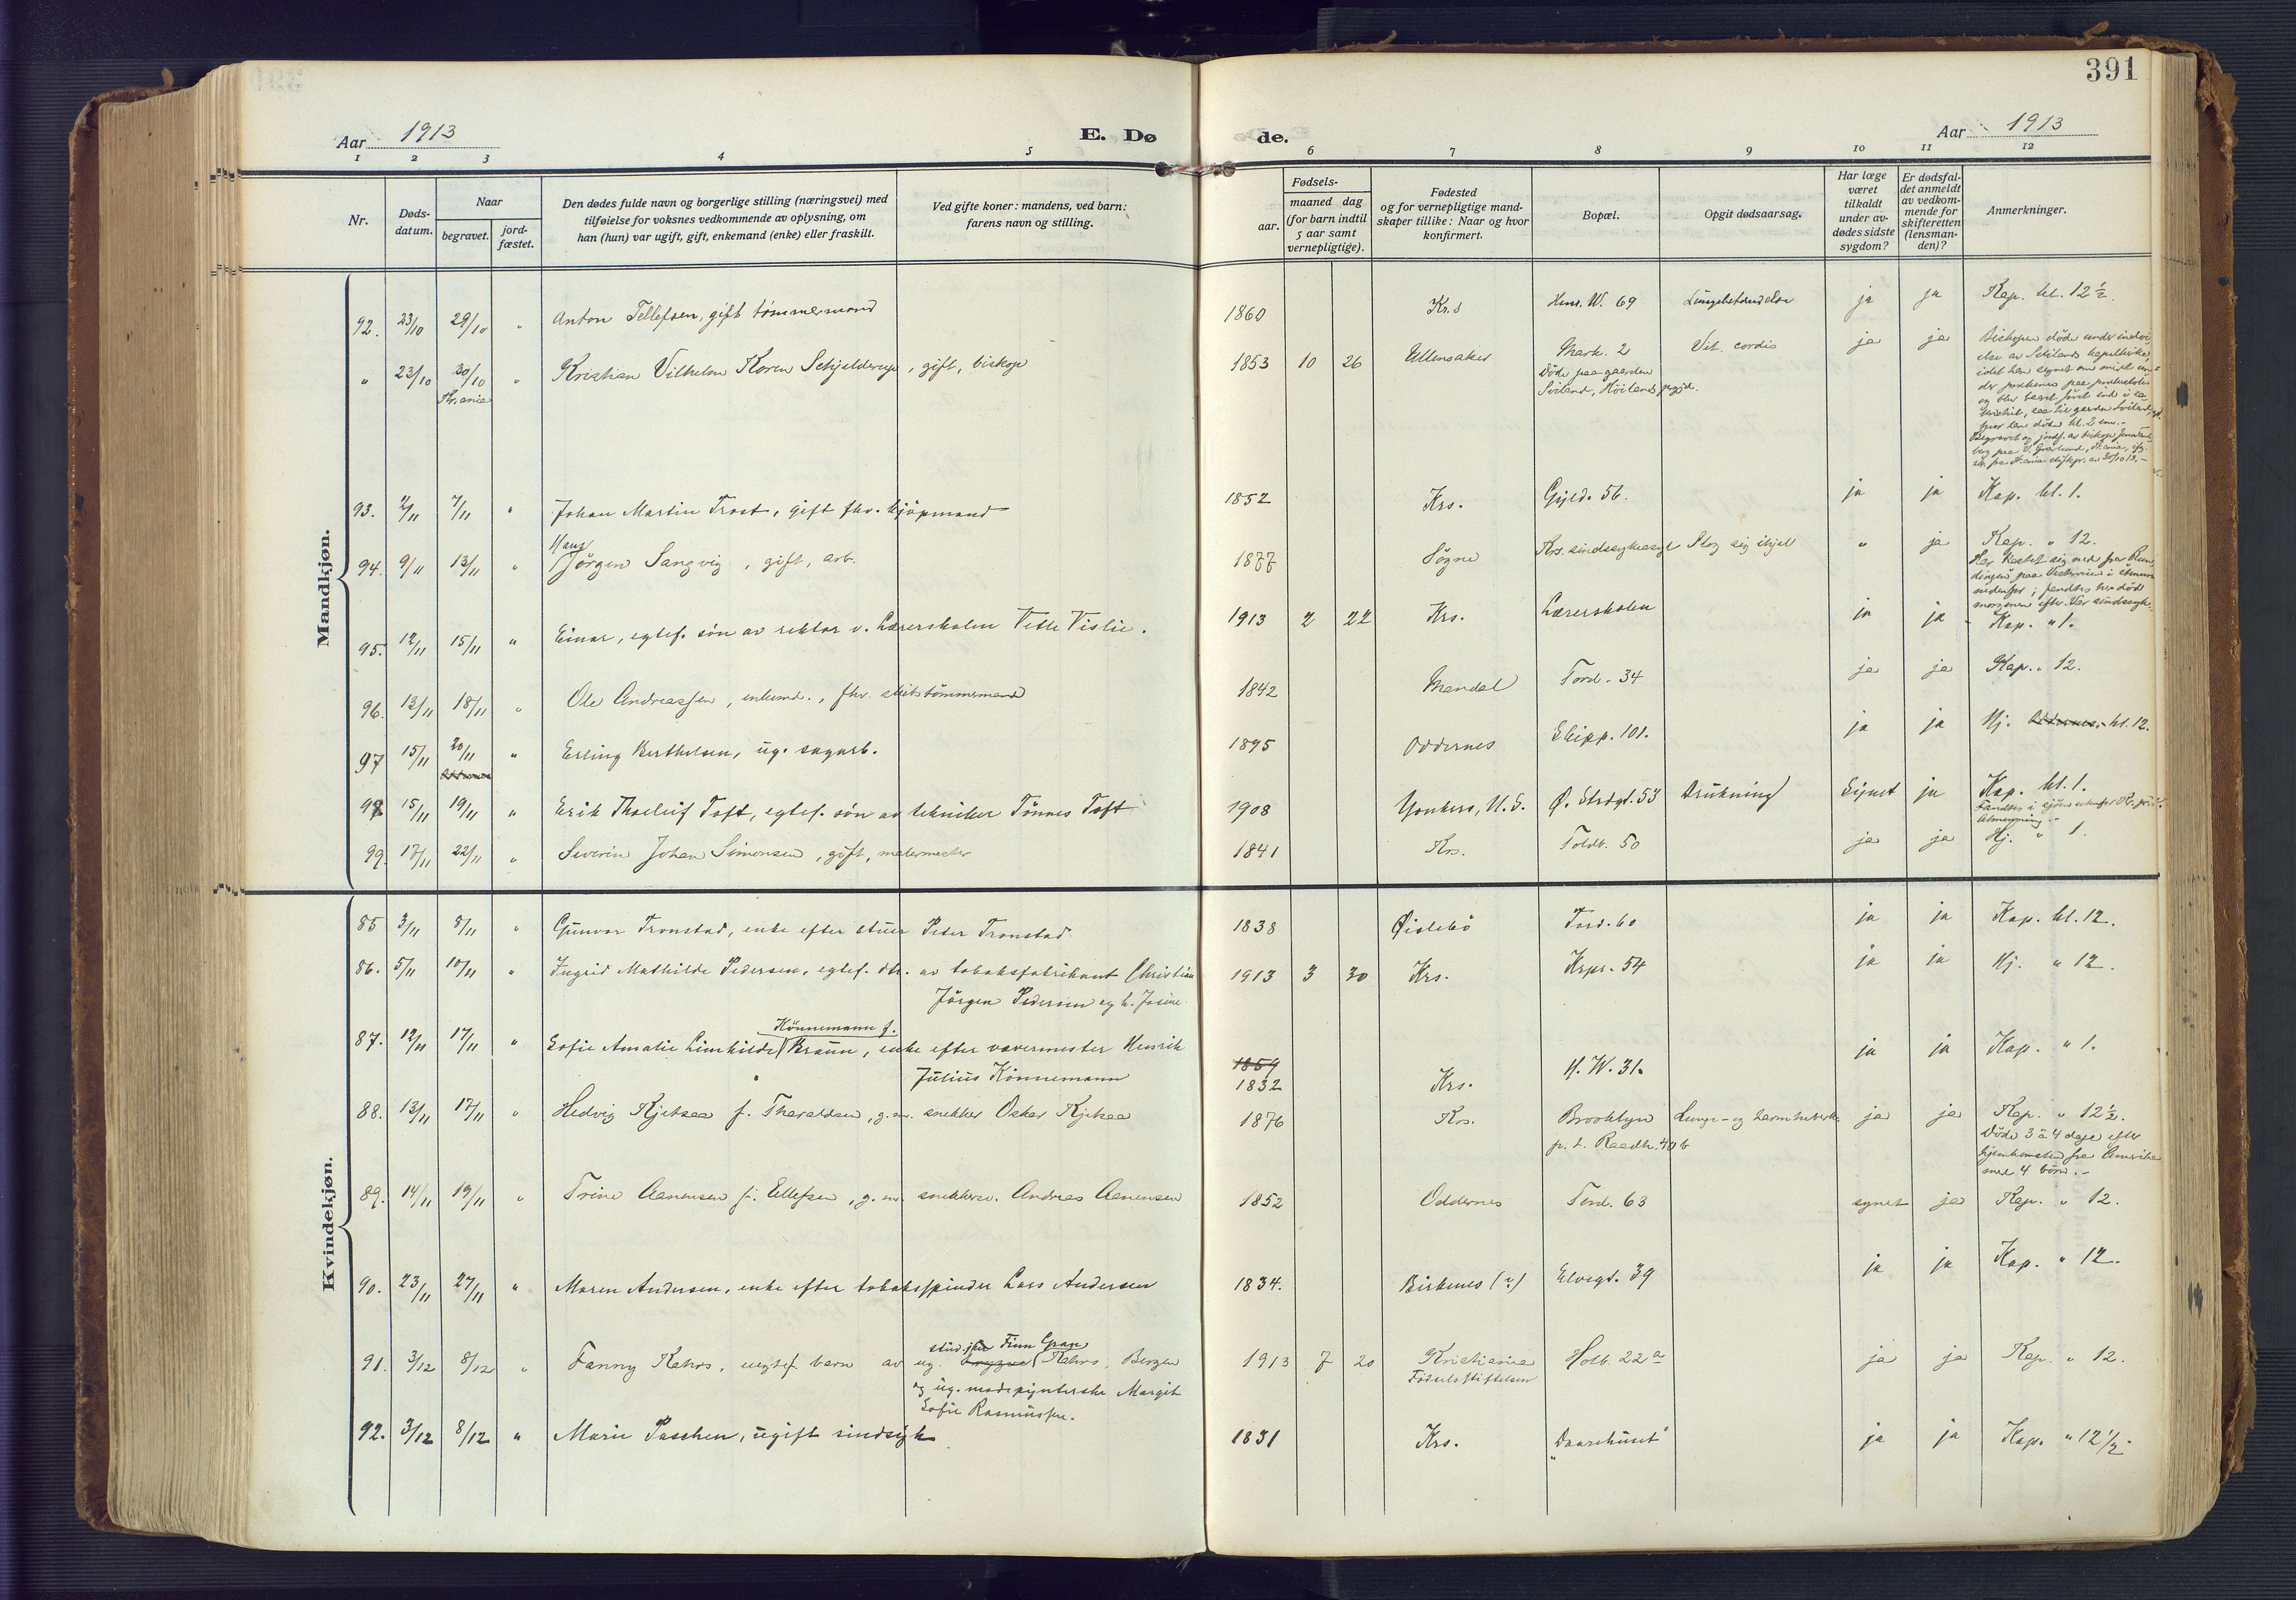 391
Aar 1913 E. Dø de. Aar 1913
1 2 3 4 5 6 7 8 9 10 11 12
Nr.
Døds-
datum.
Naar
begravet.
jord-
fæstet.
Den dødes fulde navn og borgerlige stilling (næringsvei) med
tilføielse for voksnes vedkommende av oplysning, om
han (hun) var ugift, gift, enkemand (enke) eller fraskilt.
Ved gifte koner: mandens, ved barn:
farens navn og stilling.
Fødsels-
aar.
maaned dag
(for barn indtil
5 aar samt
vernepligtige).
Fødested
og for vernepligtige mand-
skaper tillike: Naar og hvor
konfirmert.
Bopæl.
Opgit dødsaarsag.
Har læge
været
tilkaldt
under av-
dødes sidste
sygdom?
Er dødsfal-
det anmeldt
av vedkom-
mende for
skifteretten
(lensman-
den)?
Anmerkninger.
Mandkjøn.
92. 23/10 29/10 " Anton Tellefsen, gift tømmermand 1860 Kr.s Henr. W. 69 Lungebetændelse ja ja Kap. kl. 12½.
" 23/10 30/10 " Kristian Vilhelm Koren Schjelderup, gift, biskop 1853 10 26 Ullensaker Mark. 2 Vit. cordis ja ja Biskopen døde under indvi-
Kr.ania Døde paa gaarden
Søiland, Høilands prgjd.
else av Søilands kapelkirke,
idet han segnet om
og blev baaret
hvor han døde kl. 2 em.-
93. 2/11 7/11 " Johan Martin Trost, gift fhv. kjøpmand 1852 Krs. Gyld. 56. ja ja Kap. kl. 1.
94. 9/11 13/11 " Hans Jørgen Sangvig, gift, arb. 1877 Søgne Krs. sindssykeasyl Slog sig ihjel " ja Kap. " 12.
Har kastet sig ned fra
nedenfor; fandtes her død
morgenen efter. Var sindssyk.
95. 12/11 15/11 " Einar, egtef. søn av rektor v. Lærerskolen Vetle Vislie. 1913 2 22 Krs. Lærerskolen ja ja Kap. " 1.
96. 13/11 18/11 " Ole Andreassen, enkemd., fhv. skibstømmermand 1842 Mandal Tord. 34 ja ja Kap. " 12.
97 15/11 20/11 " Erling Berthelsen, ug. sagarb. 1895 Oddernes Skipp. 101. ja ja Hj. Oddernes kl. 12.
Oddernes
98 15/11 19/11 " Erik Thoeluf Toft, egtef. søn av tekniker Tønnes Toft 1908 Yonkers, U.S. Ø. Strdgt. 53 Drukning Synet ja Kap. kl. 1.
Fandtes i sjøen
99. 17/11 22/11 " Severin Johan Simonsen, gift, malermester 1841 Krs. Toldb. 50 ja ja Hj. " 1.
Kvindekjøn.
85 3/11 8/11 " Gunvor Tronstad, enke efter stuer Peter Tronstad 1838 Øislebø Tord. 60 ja ja Kap. kl. 12.
86. 5/11 10/11 " Ingrid Mathilde Pedersen, egtef. dtr. av tobaksfabrikant Christian 1913 3 30 Krs. Krpr. 54 ja ja Hj. " 12.
Jørgen Pedersen og h. Josine
Kønnemann f.
87. 12/11 17/11 " Sofie Amalie Limhilde Braun, enke efter vævermester Henrik 1859 H. W. 31. ja ja Kap. " 1.
Julius Kønnemann 1832 Krs.
88. 13/11 17/11 " Hedvig Kjetsaa f. Tharaldsen, g.m. snekker Oskar Kjetsaa 1876 Krs. Brooklyn Lunge- og tarmtuberk. ja ja Kap. " 12½.
p. t. Raadh. 40 b Døde 3 à 4 dage efter
hjemkomsten fra Amerika
med 4 børn. -
89. 14/11 19/11 " Trine Aanensen f. Ellefsen, g.m. snekkersv. Andreas Aanensen 1852 Oddernes Tord. 63 synet ja Kap. " 12.
90. 23/11 27/11 " Maren Andersen, enke efter tobaksspinder Lars Andersen 1834. Birkenes (?) Elvegt. 39 ja ja Kap. " 12.
stud. jur. Finn Gran
91. 3/12 8/12 " Fanny Kahrs, uegtef. barn av ug. Kahrs, Bergen 1913 7 20 Kristiania Holb. 22 a ja ja Kap. " 12.
og ug. modepynterske Margit Fødselsstiftelsen
Sofie Rasmussen.
92. 3/12 8/12 " Marie Paschen, ugift sindsyk 1831 Krs. "Daarehuset" ja ja Kap. " 12 1/2